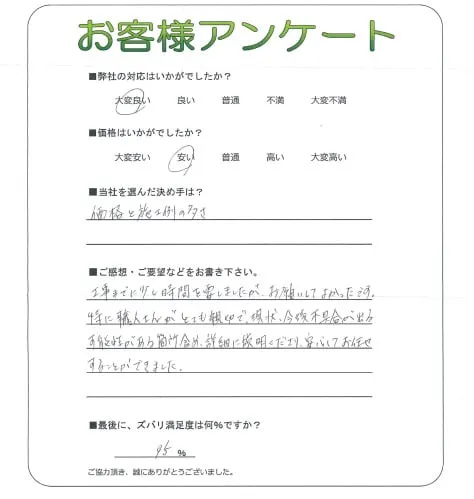 お客様アンケート
■弊社の対応はいかがでしたか？
大変良い 良い 普通 不満 大変不満
■価格はいかがでしたか？
大変安い 安い 普通 高い 大変高い
■当社を選んだ決め手は？
価格と施工例の多さ
■ご感想・ご要望などをお書き下さい。
工事までに少し時間を要しましたが、お願いしてよかったです。
特に職人さんがとても親切で、現状、今後不具合が出る
可能性がある箇所含め、詳細に説明くださり、安心してお任せ
することができました。
■最後に、ズバリ満足度は何％ですか？
95 %
ご協力頂き、誠にありがとうございました。